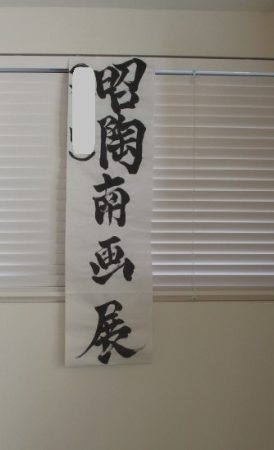 昭陶南画展